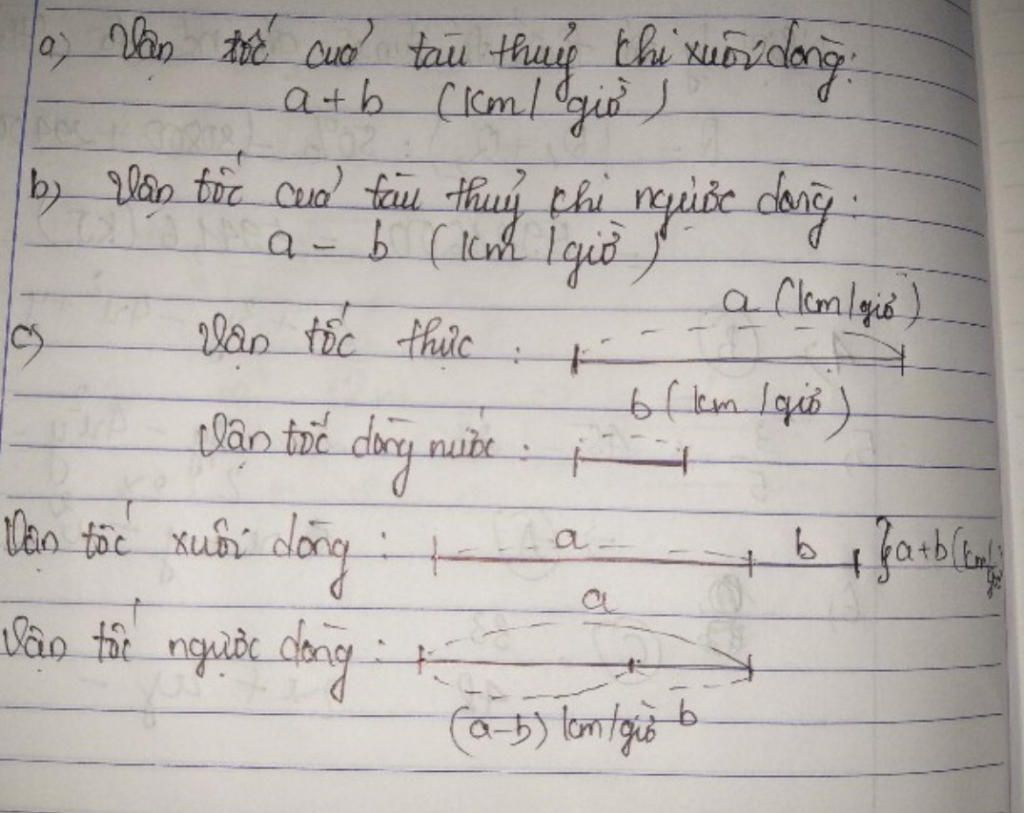 a) Vận tốc của tàu thuỷ khi xuôi dòng:
a + b (km/giờ)
b) Vận tốc của tàu thuỷ khi ngược dòng:
a - b (km/giờ)
a (km/giờ)
c) Vận tốc thực :
b (km/giờ)
Vận tốc dòng nước :
Vận tốc xuôi dòng : a b } a+b (km/giờ
a
Vận tốc ngược dòng :
(a-b) km/giờ b